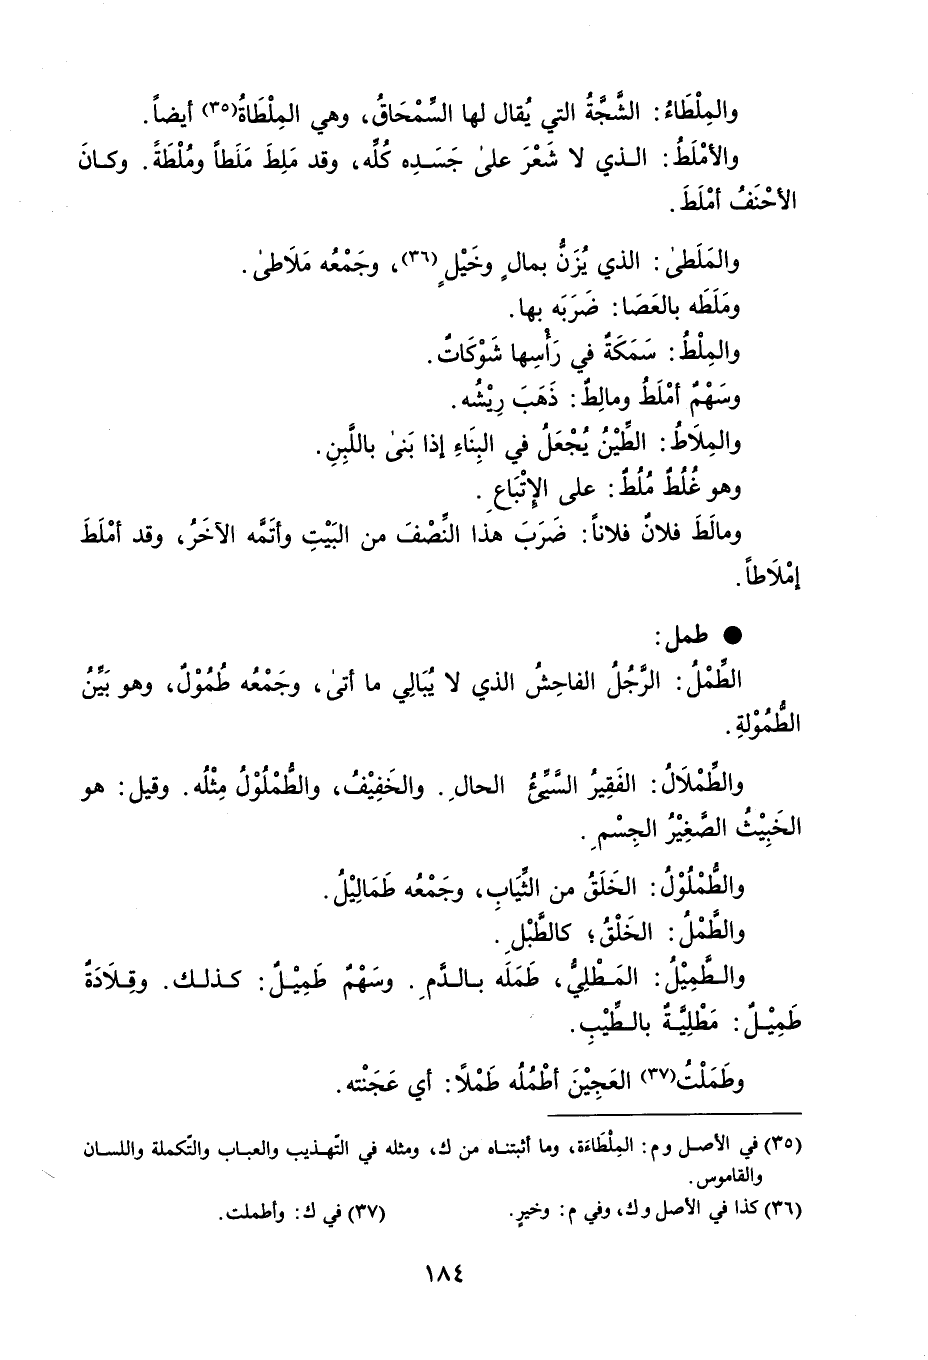 والمِلْطَاءُ: الشَّجَّةُ التي يُقال لها السِّمْحَاقُ، وهي المِلْطَاةُ(٣٥) أيضاً.
والأمْلَطُ: الـذي لا شَعْرَ علىٰ جَسَـدِه كُلِّه، وقد مَلِطَ مَلَطاً ومُلْطَةً. وكـانَ
الأحْنَفُ أمْلَطَ.
والمَلَطىٰ: الذي يُزَنُّ بمالٍ وخَيْلٍ(٣٦)، وجَمْعُه مَلَاطىٰ.
ومَلَطَه بالعَصَا: ضَرَبَه بها.
والمِلْطُ: سَمَكَةٌ في رَأْسِها شَوْكَاتٌ.
وسَهْمٌ أمْلَطُ ومالِطٌ: ذَهَبَ رِيْشُه.
والمِلَاطُ: الطِّيْنُ يُجْعَلُ في البِنَاءِ إذا بَنىٰ باللَّبِنِ.
وهو غُلُطٌ مُلُطٌ: على الإِتْبَاعِ.
ومالَطَ فلانٌ فلاناً: ضَرَبَ هذا النِّصْفَ من البَيْتِ وأتَمَّه الآخَرُ، وقد أمْلَطَ
إمْلَاطاً.
● طمل:
الطِّمْلُ: الرَّجُلُ الفاحِشُ الذي لا يُبَالِي ما أتىٰ، وجَمْعُه طُمُوْلٌ، وهو بَيِّنُ
الطُّمُوْلةِ.
والطِّمْلَالُ: الفَقِيرُ السَّيِّئُ الحالِ. والخَفِيْفُ، والطُّمْلُوْلُ مِثْلُه. وقيل: هو
الخَبِيْثُ الصَّغِيْرُ الجِسْمِ.
والطُّمْلُوْلُ: الخَلَقُ من الثِّيَابِ، وجَمْعُه طَمَالِيْلُ.
والطَّمْلُ: الخَلْقُ؛ كالطَّبْلِ.
والـطَّمِيْلُ: المَـطْلِيُّ، طَمَلَه بـالـدَّمِ. وسَهْمٌ طَمِيْـلٌ: كـذلـك. وقِـلَادَةٌ
طَمِيْـلٌ: مَطْلِيَّـةٌ بالـطِّيْبِ.
وطَمَلْتُ(٣٧) العَجِيْنَ أطْمُلُه طَمْلًا: أي عَجَنْته.
(٣٥) في الأصـل وم: المِلْطَاءَة، وما أثبتنـاه من ك، ومثله في التّهـذيب والعبـاب والتّكملة واللسان
والقاموس.
(٣٦) كذا في الأصل وك، وفي م: وخيرٍ.
(٣٧) في ك: وأطملت.
١٨٤